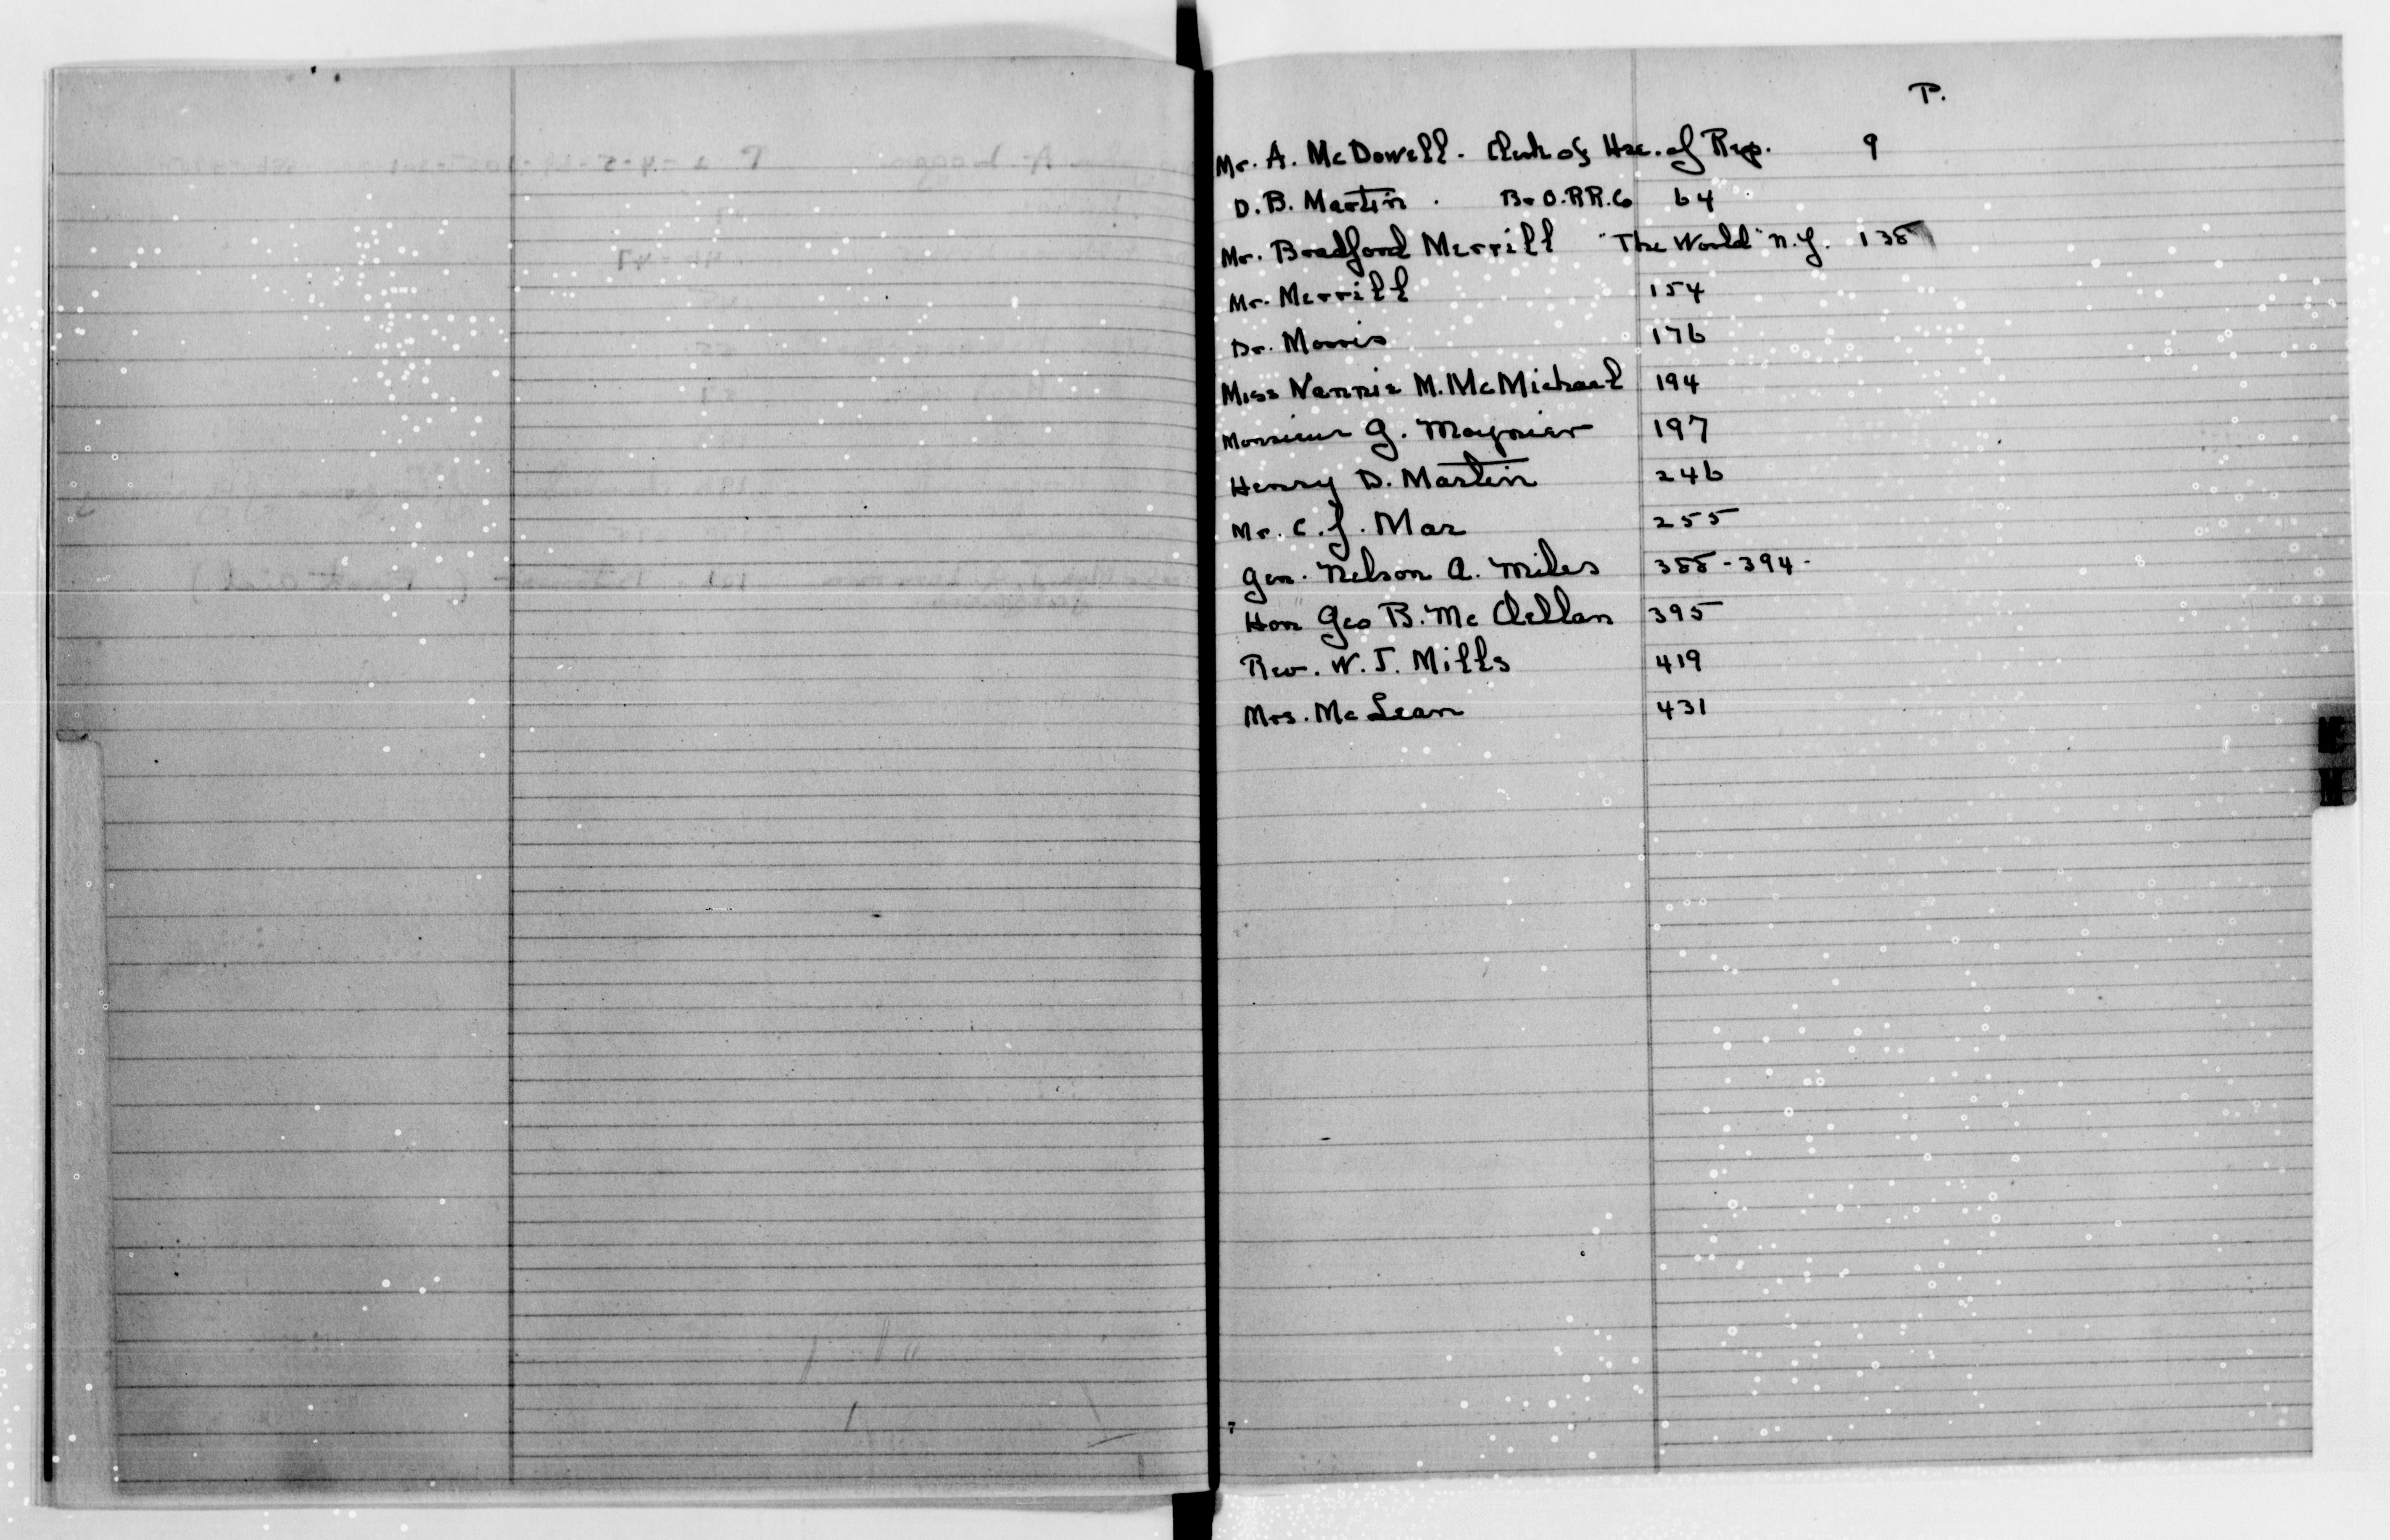 P.
Mr. A. McDowell. Clerk of Hse. of Rep. 9
D. B. Martin. B & O. RR. Co 64
Mr. Bradford Merrill "The World" N.Y. 135
Mr. Merrill 154
Dr. Morris 176
Miss Nannie M. McMichael 194
Monsieur G. Moynier 197
Henry D. Martin 246
Mr. C. J. Mar 255
Gen. Nelson A. Miles 355-394-
Hon Geo B. McClellan 395
Rev. W. J. Mills 419
Mrs. McLean 431
7
M